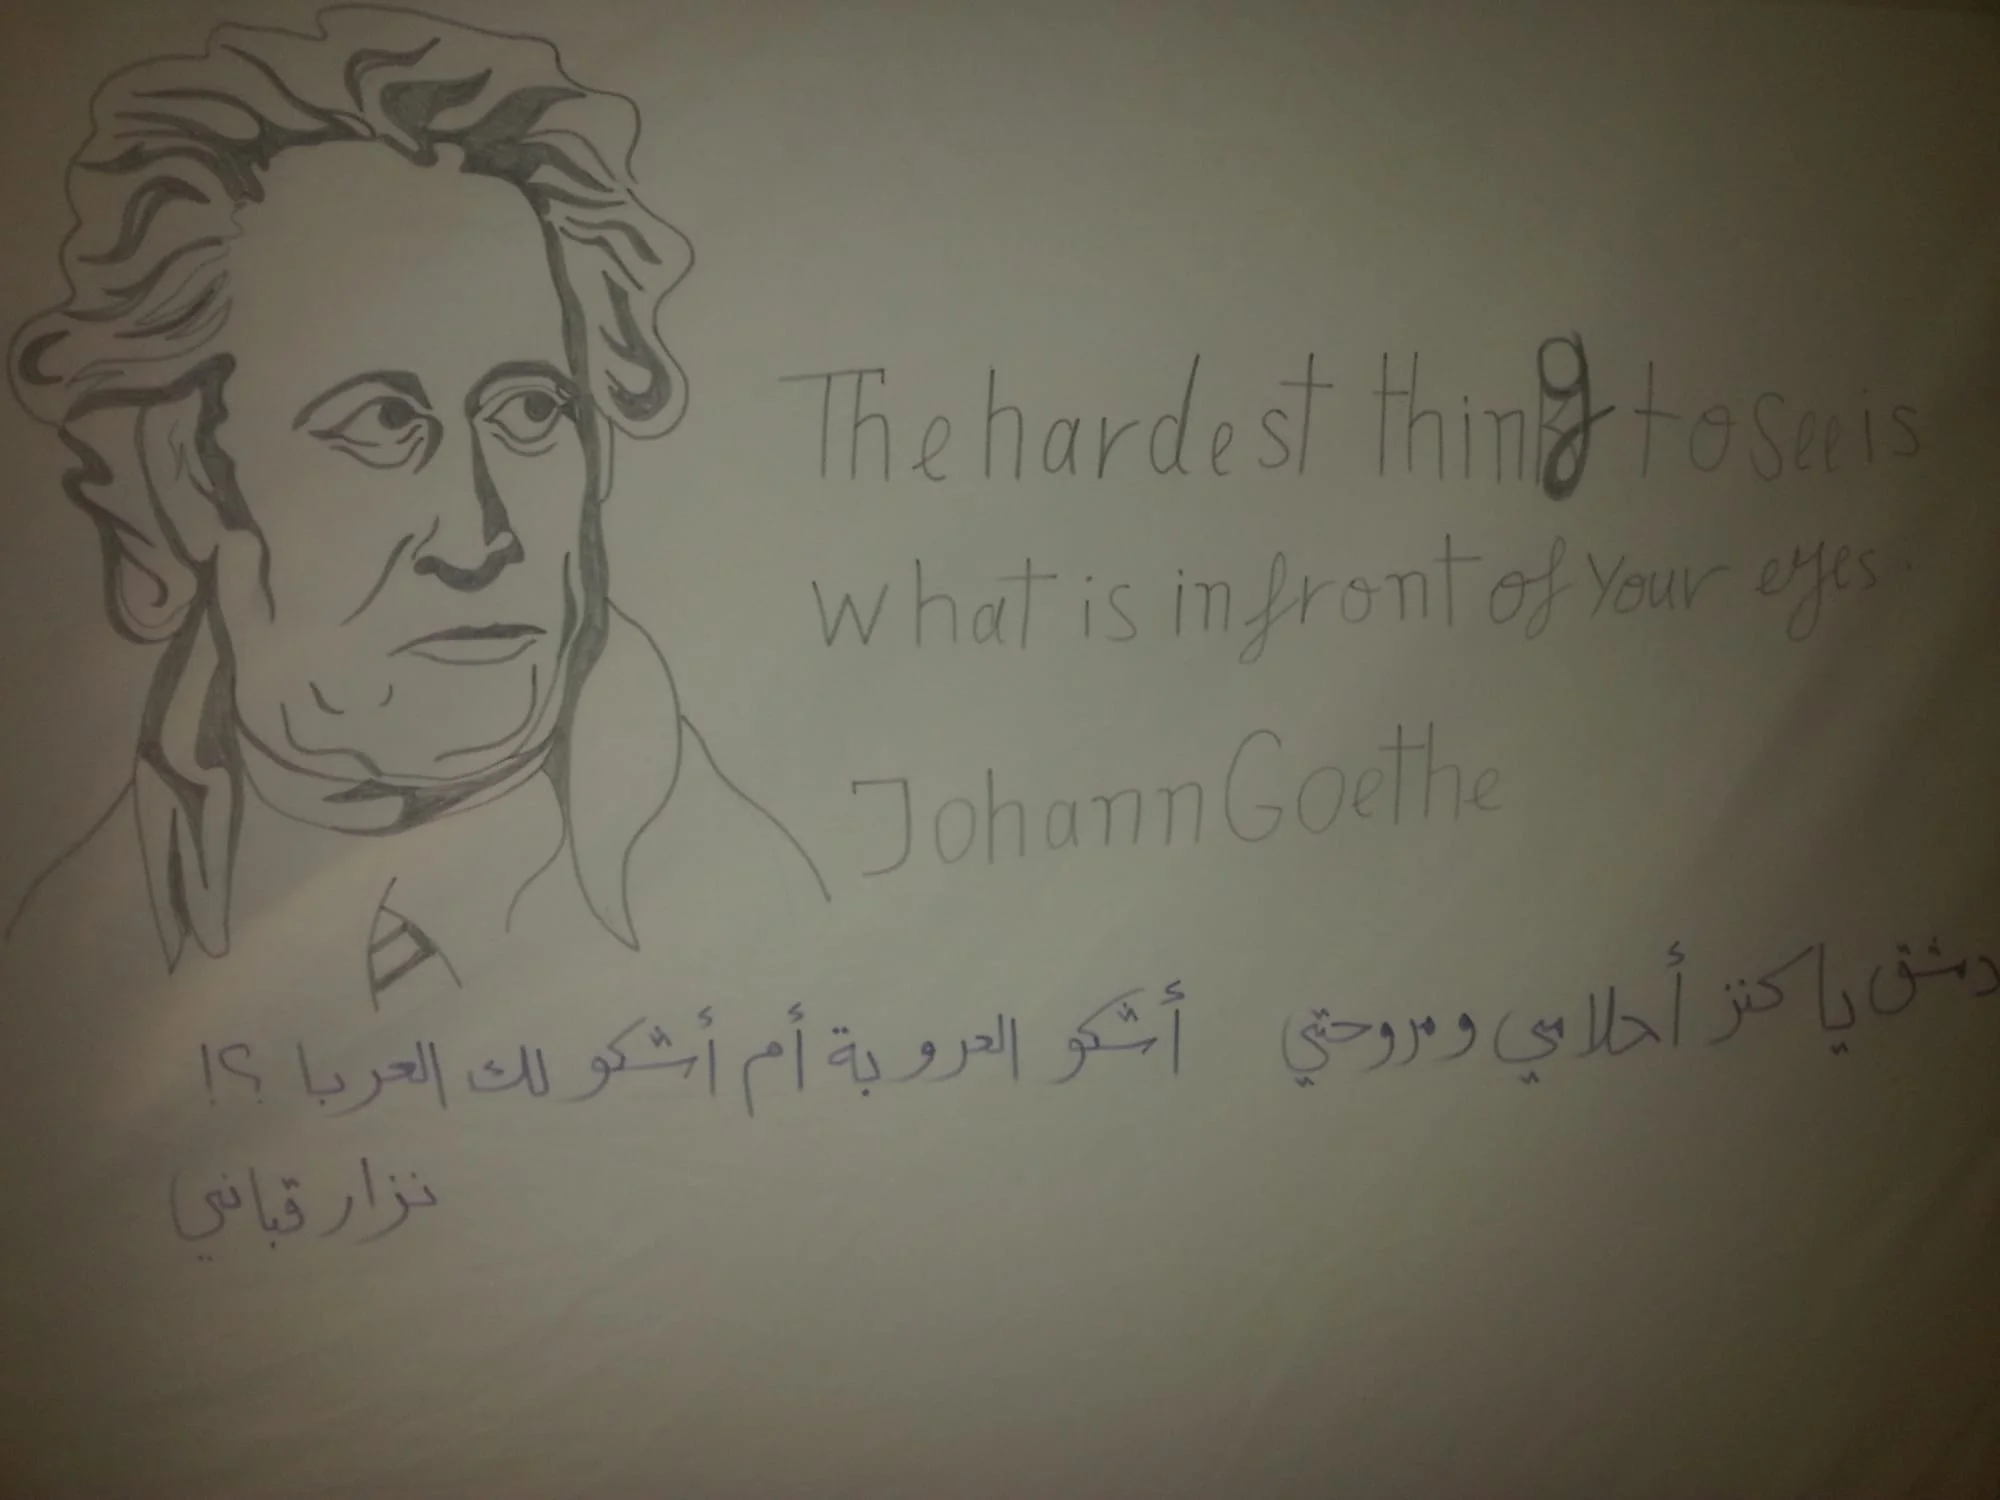 The hardest thing to see is
what is in front of your eyes.
Johann Goethe
دمشق يا كنز أحلامي ومروحتي أشكو العروبة أم أشكو لك العربا ؟!
نزار قباني